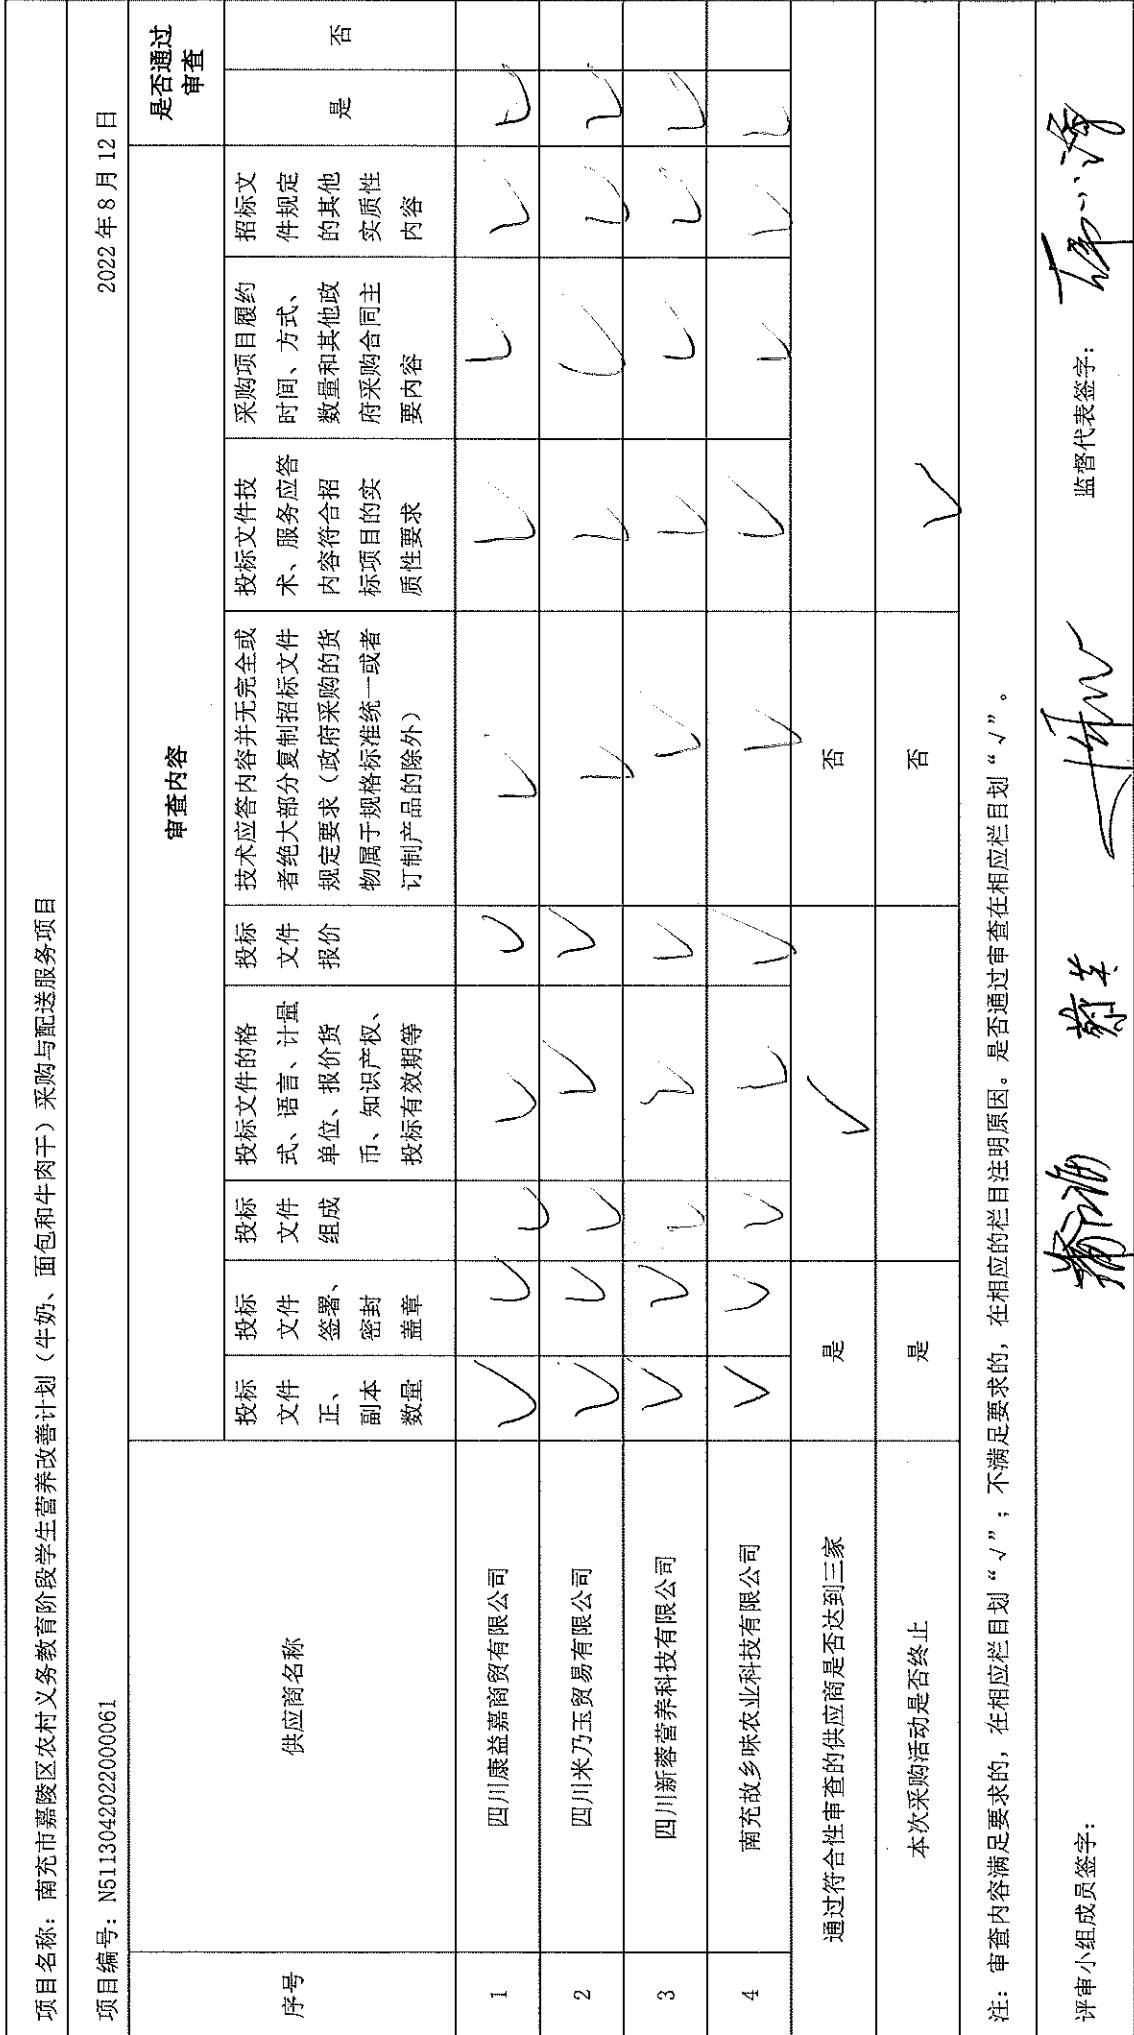 项目名称：南充市嘉陵区农村义务教育阶段学生营养改善计划（牛奶、面包和牛肉干）采购与配送服务项目
项目编号：N5113042022000061
2022 年 8 月 12 日
序号
供应商名称
审查内容
是否通过
审查
投标
文件
正、
副本
数量
投标
文件
签署、
密封
盖章
投标
文件
组成
投标文件的格
式、语言、计量
单位、报价货
币、知识产权、
投标有效期等
投标
文件
报价
技术应答内容并无完全或
者绝大部分复制招标文件
规定要求（政府采购的货
物属于规格标准统一或者
订制产品的除外）
投标文件技
术、服务应答
内容符合招
标项目的实
质性要求
采购项目履约
时间、方式、
数量和其他政
府采购合同主
要内容
招标文
件规定
的其他
实质性
内容
是
否
1 四川康益嘉商贸有限公司 √ √ √ √ √ √ √ √ √ √
2 四川米乃玉贸易有限公司 √ √ √ √ √ √ √ √ √ √
3 四川新蓉营养科技有限公司 √ √ √ √ √ √ √ √ √ √
4 南充故乡味农业科技有限公司 √ √ √ √ √ √ √ √ √ √
通过符合性审查的供应商是否达到三家 是 √ 否
本次采购活动是否终止 是 否 √
注：审查内容满足要求的，在相应栏目划“√”；不满足要求的，在相应的栏目注明原因。是否通过审查在相应栏目划“√”。
评审小组成员签字：
监督代表签字：